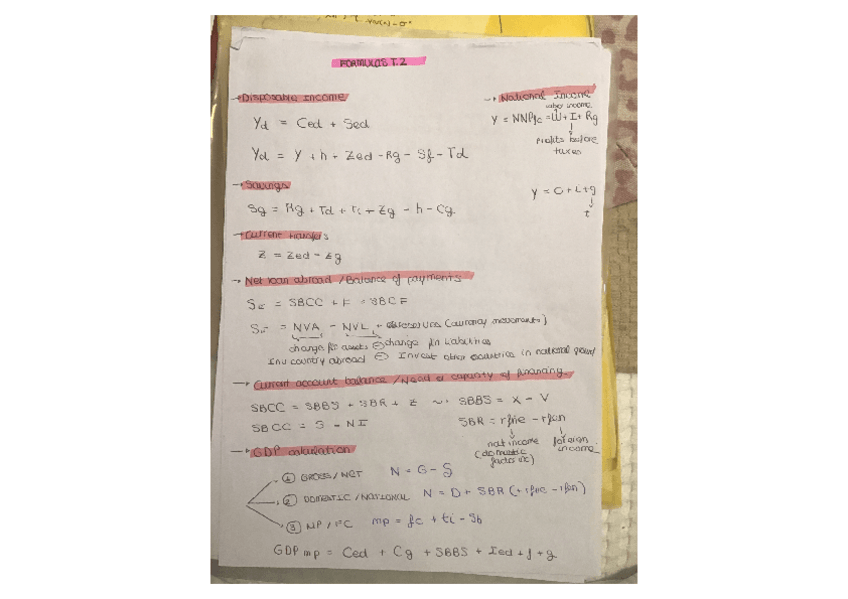 FORMULAS T.2
→ Disposable Income
Yd = Ced + Sed
Yd = Y + h + Zed - Rg - Sf - Td
→ National Income
labor income
Y = NNPfc = W + I + Rg
profits before
taxes
→ Savings
Sg = Rg + Td + Ti + Zg - h - Cg.
Y = C + I + g
t
→ Current transfers
Z = Zed - Zg
→ Net loan abroad / Balance of payments
= SBCC + F = SBCF
= NVA - NVL + reserves (currency movements)
change for assets ⊖ change for liabilities
Inv country abroad ⊖ Invest other countries in national
→ Current account balance / Need or capacity of financing.
SBCC = SBBS + SBR + Z ~ SBBS = X - V
SBCC = S - NI
SBR = rfne - rfen
nat income
(domestic
factors etc)
foreign
income
→ GDP calculation
① GROSS / NET N = G - δ
② DOMESTIC / NATIONAL N = D + SBR (+ rfne - rfen)
③ MP / FC mp = fc + ti - Sb
GDP mp = Ced + Cg + SBBS + Ied + f + g